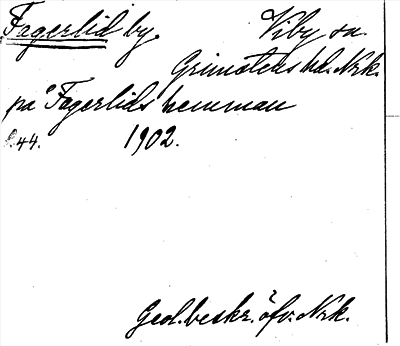 Fagerlid by. Viby sn.
Grimstens hd. Nrk.
på Fagerlids hemman
s.44. 1902.
Geol. beskr. öfv. Nrk.